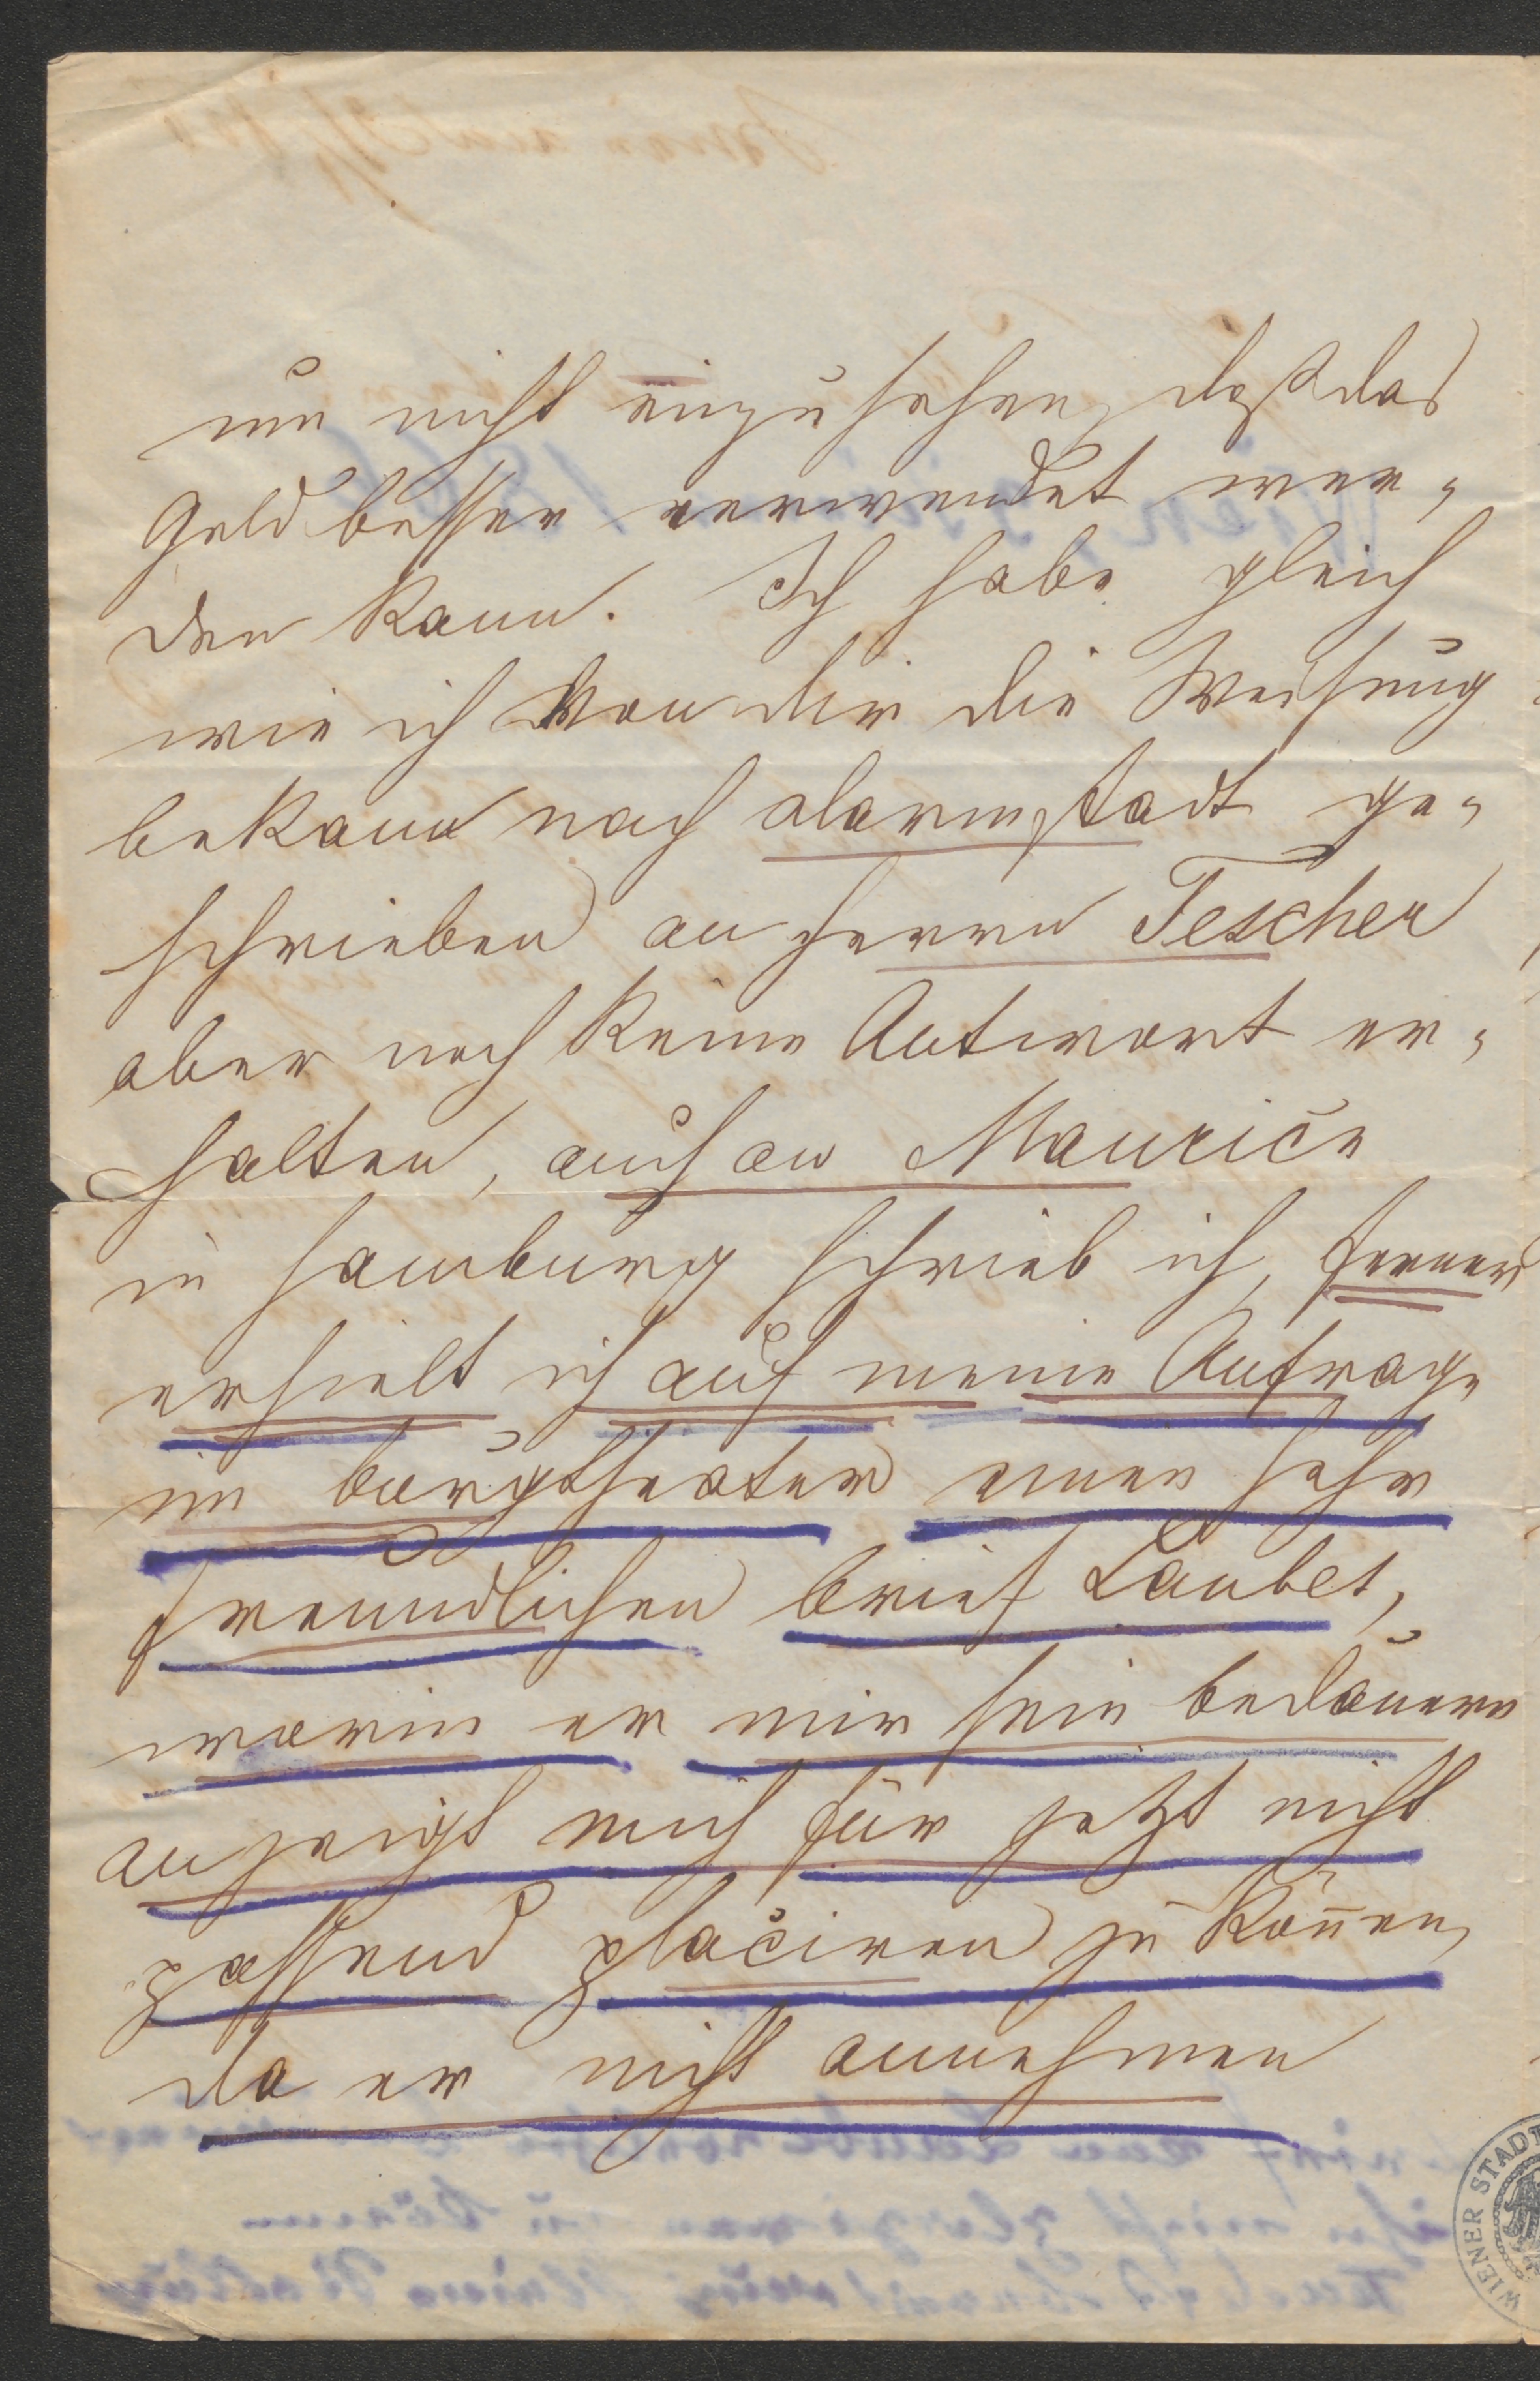 um nicht einzusehen, daß das
Geld besser verwendet wer-
den kann. Ich habe gleich
wie ich von dir die Weisung
bekam nach darmstadt ge-
schrieben an Herrn Tescher
aber noch keine Antwort er-
halten, auch an Maurice
in Hamburg schrieb ich, ferner
erhielt ich auf meine Anfrage
im burgtheater einen sehr
freundlichen brief Laubes,
worin er mir sein bedauern
anzeigt mich für jetzt nicht
passend placiren zu können,
da er nicht annehmen
WIENER STADT